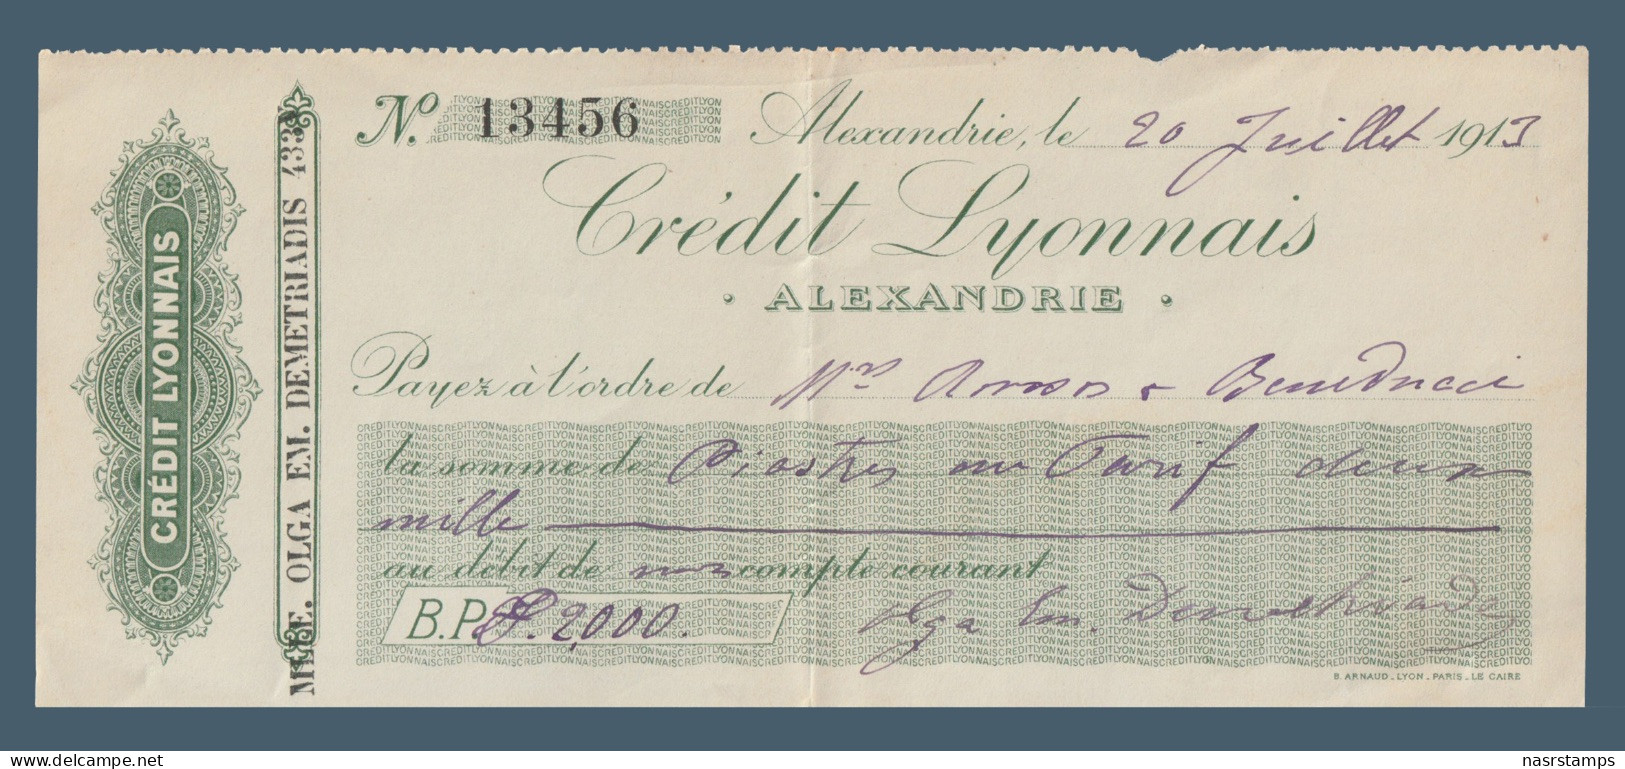 CRÉDIT LYONNAIS
MME. OLGA EM. DEMETRIADIS 433
No. 13456
Alexandrie, le 20 Juillet 1913
Crédit Lyonnais
• ALEXANDRIE •
Payez à l'ordre de Mrs & Beneducci
la somme de Piastres au Tarif deux
mille
au débit de mon compte courant
B.P. 2,000.
Olga Em. Demetriadis
B. ARNAUD_LYON_PARIS_LE CAIRE
delcampe.net
nasrstamps